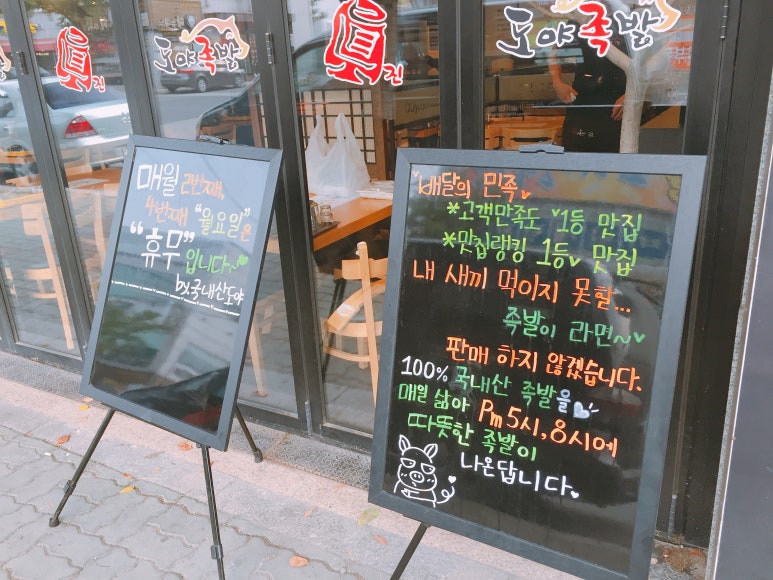 도야족발
眞진
도야족발
眞진
매월 2번째,
4번째 "월요일"은
"휴무"입니다~
by.국내산도야
배달의 민족
*고객만족도 1등 맛집
*맛집랭킹 1등 맛집
내 새끼 먹이지 못할...
족발이 라면~
판매 하지 않겠습니다.
100% 국내산 족발을
매일 삶아 Pm 5시, 8시에
따뜻한 족발이
나온답니다.